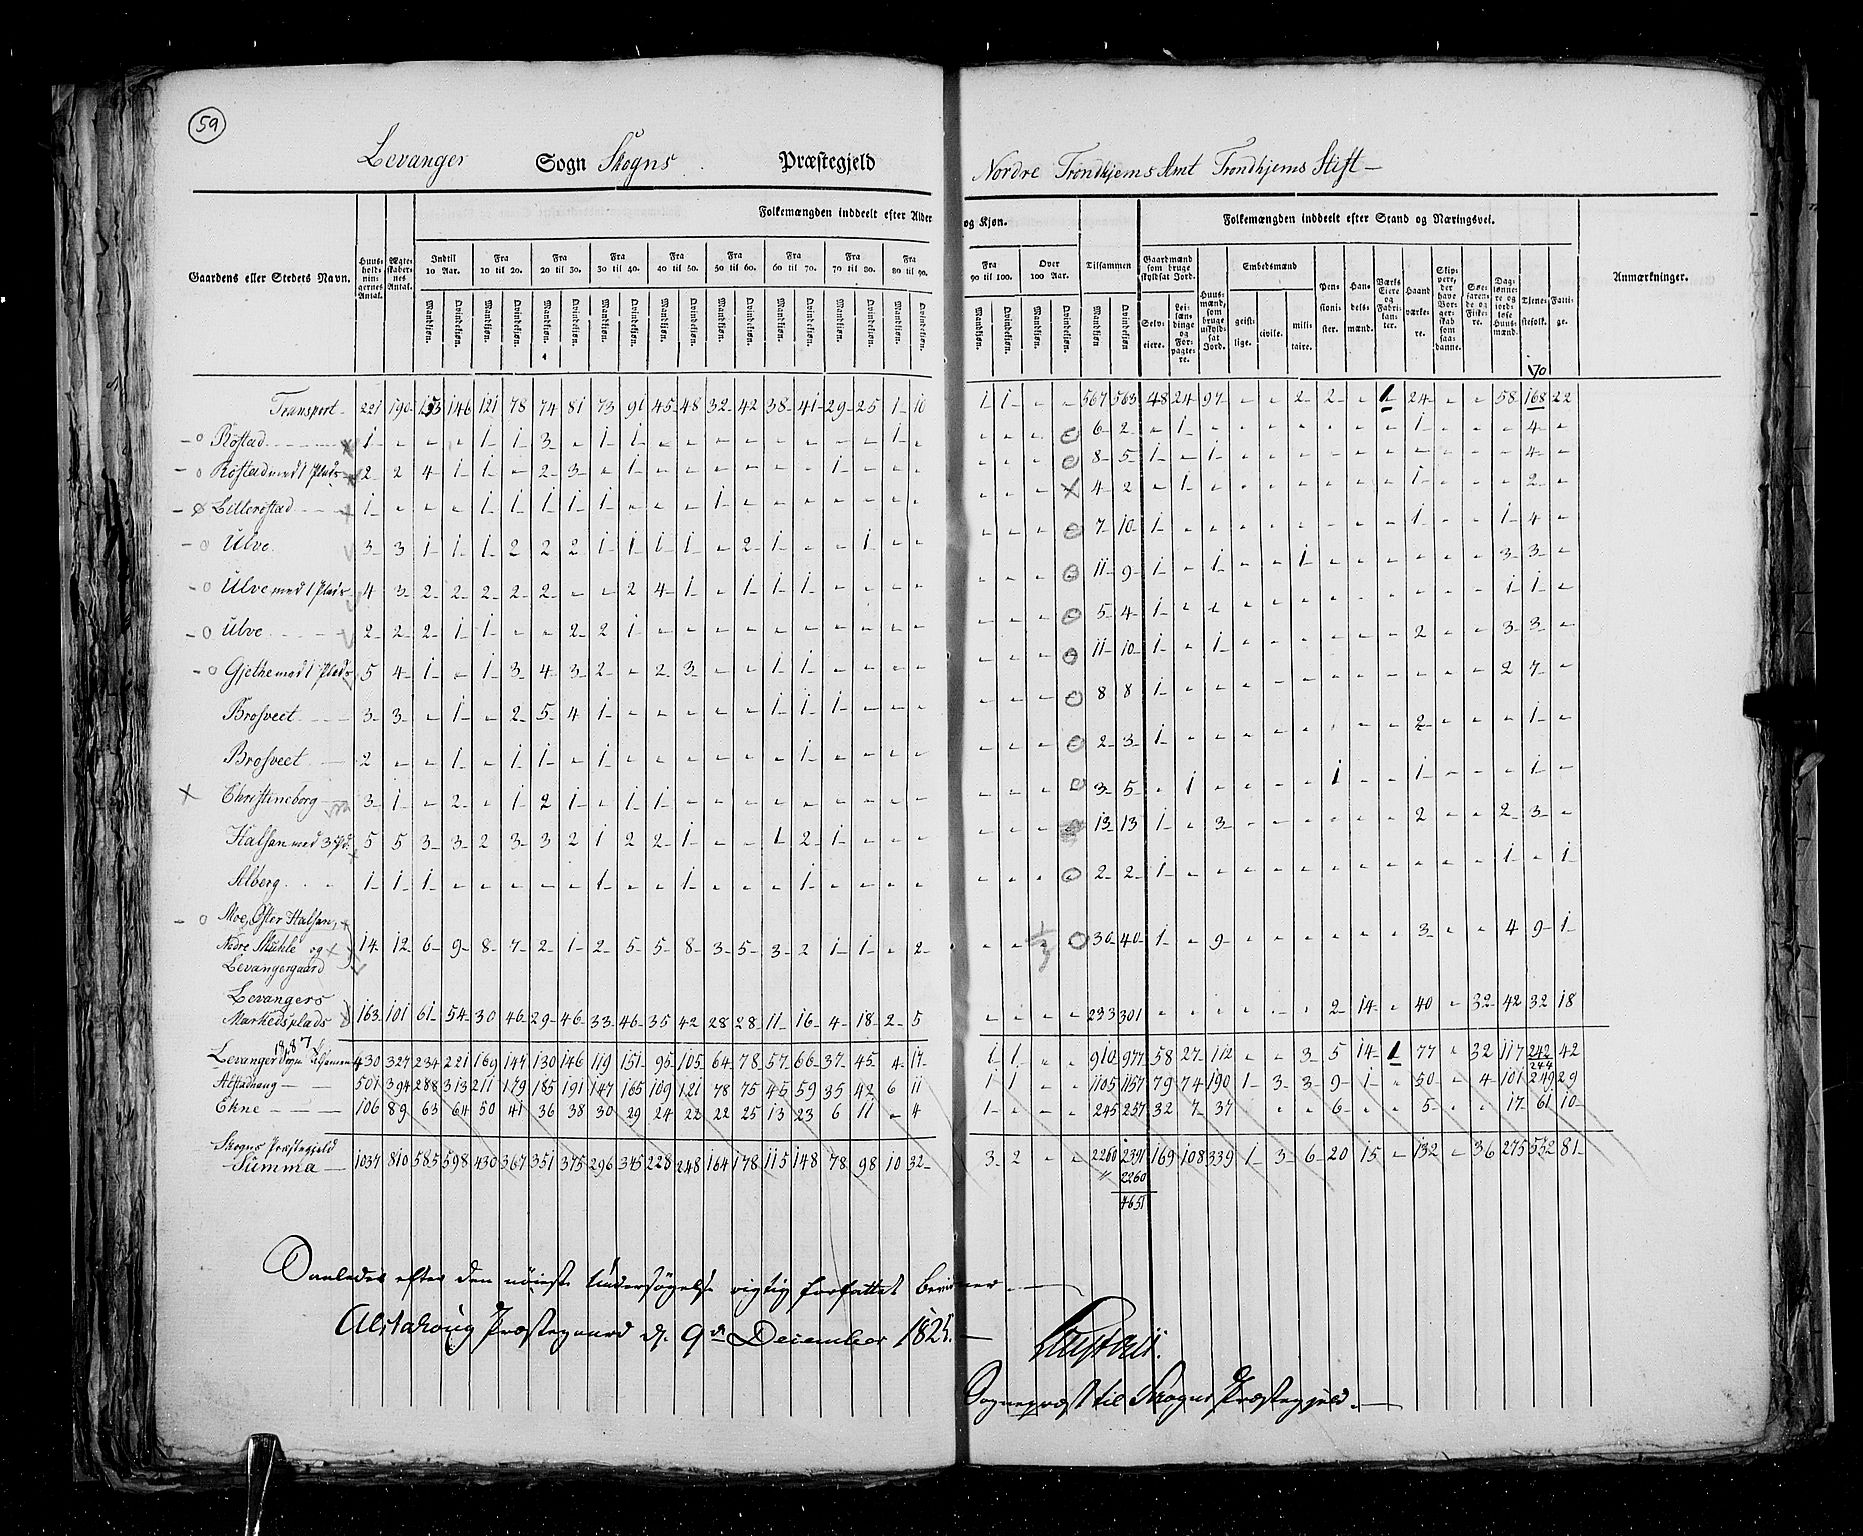 59
Levanger Sogn Skogns Præstegjeld Nordre Trondhjems Amt Trondhjems Stift
Gaardens eller Stedets Navn. Huusholdningernes Antal. Ægteskabernes Antal. Folkemængden inddeelt efter Alder og Kjøn. Tilsammen Folkemængden inddeelt efter Stand og Næringsvei. Anmærkninger.
Indtil 10 Aar. Fra 10 til 20. Fra 20 til 30. Fra 30 til 40. Fra 40 til 50. Fra 50 til 60. Fra 60 til 70. Fra 70 til 80. Fra 80 til 90. Fra 90 til 100. Over 100 Aar.
Mandkjøn. Qvindekjøn.
Gaardmænd som bruge skyldsat Jord. Selveiere. Leilændinge og Forpagtere. Huusmænd, som bruge uskyldsat Jord. Embedsmænd geistlige. civile. militaire. Pensionister. Handelsmænd. Værks Eiere og Fabrikanter. Haandværkere. Skippere, der have Borgerskab som saadanne. Søefarende og Fiskere. Daglønnere og jordløse Huusmænd. Tjenestefolk. Fattige.
170
Transport 221 190 153 146 121 78 74 81 73 91 45 48 32 42 38 41 29 25 1 10 1 1 " " 567 563 48 24 97 " " 2 2 " 1 24 " " 58 168 22
Röstad 1 " " " 1 1 3 " 1 1 " " " " " " " " 1 " " " " " 6 2 " 1 " " " " " " " 1 " " " 4 "
Röstad med 1 Plads 2 2 4 1 1 " 2 3 " 1 " " " " " " 1 " " " " " " " 8 5 1 " 1 " " " " " " " " " " 4 "
Litleröstad 1 " " " 1 1 1 1 1 " " " 1 " " " " " " " " " " " 4 2 " 1 " " " " " " " 1 " " " 2 "
Ulve 3 3 1 1 1 2 2 2 1 1 1 1 " 2 1 " " 1 " " " " " " 7 10 1 " " " " " " " " 1 " " 1 4 "
Ulve med 1 Plads 4 3 2 2 2 2 2 " " 2 4 1 " 1 1 1 " " " " " " " " 11 9 1 " 1 " " 1 " " " " " " 3 3 "
Ulve 2 2 2 1 1 " " 2 2 1 " " " " " " " " " " " " " " 5 4 1 " " " " " " " " " " " 1 1 "
Gjethe med 1 Plads 5 4 1 " 1 3 4 3 2 " 2 3 " " 1 1 " " " " " " " " 11 10 1 " 1 " " " " " " 2 " " 3 3 "
Brosveet 3 3 " 1 " 2 5 4 1 " " " " " 1 1 1 " " " " " " " 8 8 1 " " " " " " " " " " " 2 7 "
Brosveet 2 " " 1 " 1 1 " 1 " " " " " " 1 " " " " " " " " 2 3 1 " " " " " " " " 2 " " " 1 "
Christineborg 3 1 " 2 " 1 2 1 " 1 1 " " " " " " " " " " " " " 3 5 " 1 " " " " 1 " " 1 " " " 1 "
Halsan med 3 Pl: 5 5 3 3 2 3 3 2 1 2 2 1 " " 1 2 1 " " " " " " " 13 13 1 " 3 " " " " " " 2 " " 2 3 "
Alberg 1 1 1 " " " " " 1 " " 1 " " " 1 " " " " " " " " 2 2 1 " " " " " " " " " " " 1 " 1
Moe, Øster Halsan,
Nedre Skuhle og 14 12 6 9 8 7 2 1 2 5 5 8 3 5 3 2 1 1 " 2 " " " " 30 40 1 " 9 " " " " " " 3 " " 4 9 1
Levangergaard
Levangers
Markedsplads 163 101 61 54 30 46 29 46 33 46 35 42 28 28 11 16 4 18 2 5 " " " " 233 301 " " " " " " 2 14 " 40 " 32 42 32 18
1887
Levanger Sogn tilsammen 430 327 234 221 169 147 130 146 119 151 95 105 64 78 57 66 37 45 4 17 1 1 " " 910 977 58 27 112 " " 3 5 14 1 77 " 32 117 242 42
244
Alstadhaug 501 394 288 313 211 179 185 191 147 165 109 121 78 75 45 59 35 42 6 11 1 1 " " 1105 1157 79 74 190 1 3 3 9 1 " 50 " 4 101 249 29
Ekne 106 89 63 64 50 41 36 38 30 29 24 22 22 25 13 23 6 11 " 4 1 " " " 245 257 32 7 37 " " " 6 " " 5 " " 17 61 10
Skogns Præstegjeld
Summa 1037 810 585 598 430 367 351 375 296 345 228 248 164 178 115 148 78 98 10 32 3 2 " " 2260 2391 169 108 339 1 3 6 20 15 " 132 " 36 275 552 81
2260
4651
Saaledes efter den nöieste Undersøgelse rigtig forfattet bevidner
Alstahoug Præstegaard d. 9de December 1825.
Sognepræst til Skogns Præstegjeld.